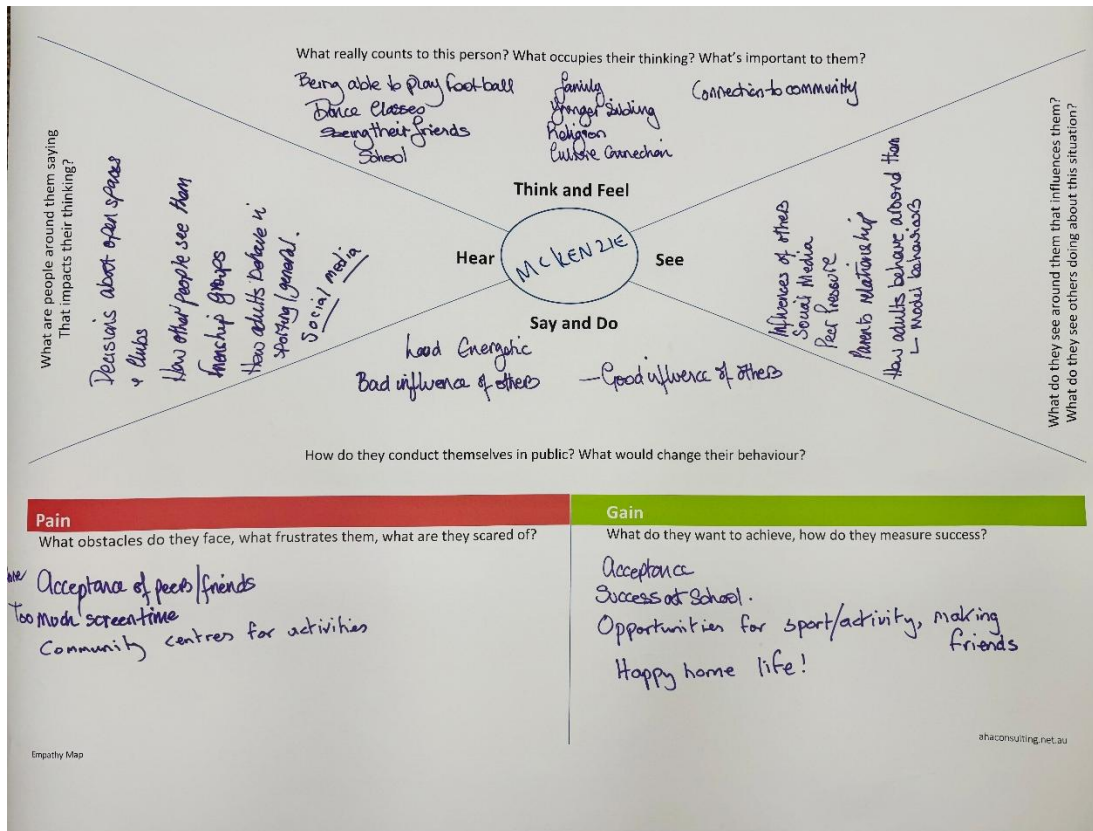 What really counts to this person? What occupies their thinking? What's important to them?
Being able to play football
Dance Classes
Seeing their friends
School
family
Younger Sibling
Religion
Culture Connection
Connection to community
Think and Feel
What are people around them saying
That impacts their thinking?
Decisions about open spaces
& clubs
How other people see them
friendship groups
How adults behave in
sporting/general.
Social media
Hear
MCKENZIE
See
Influences of others
Social Media
Peer Pressure
Parents relationship
How adults behave around them
Model behaviors
What do they see around them that influences them?
What do they see others doing about this situation?
Say and Do
Loud Energetic
Bad influence of others
— Good influence of others
How do they conduct themselves in public? What would change their behaviour?
Pain
What obstacles do they face, what frustrates them, what are they scared of?
Acceptance of peers/friends
Too much screentime
Community centres for activities
Gain
What do they want to achieve, how do they measure success?
Acceptance
Success at School.
Opportunities for sport/activity, making
friends
Happy home life!
ahaconsulting.net.au
Empathy Map